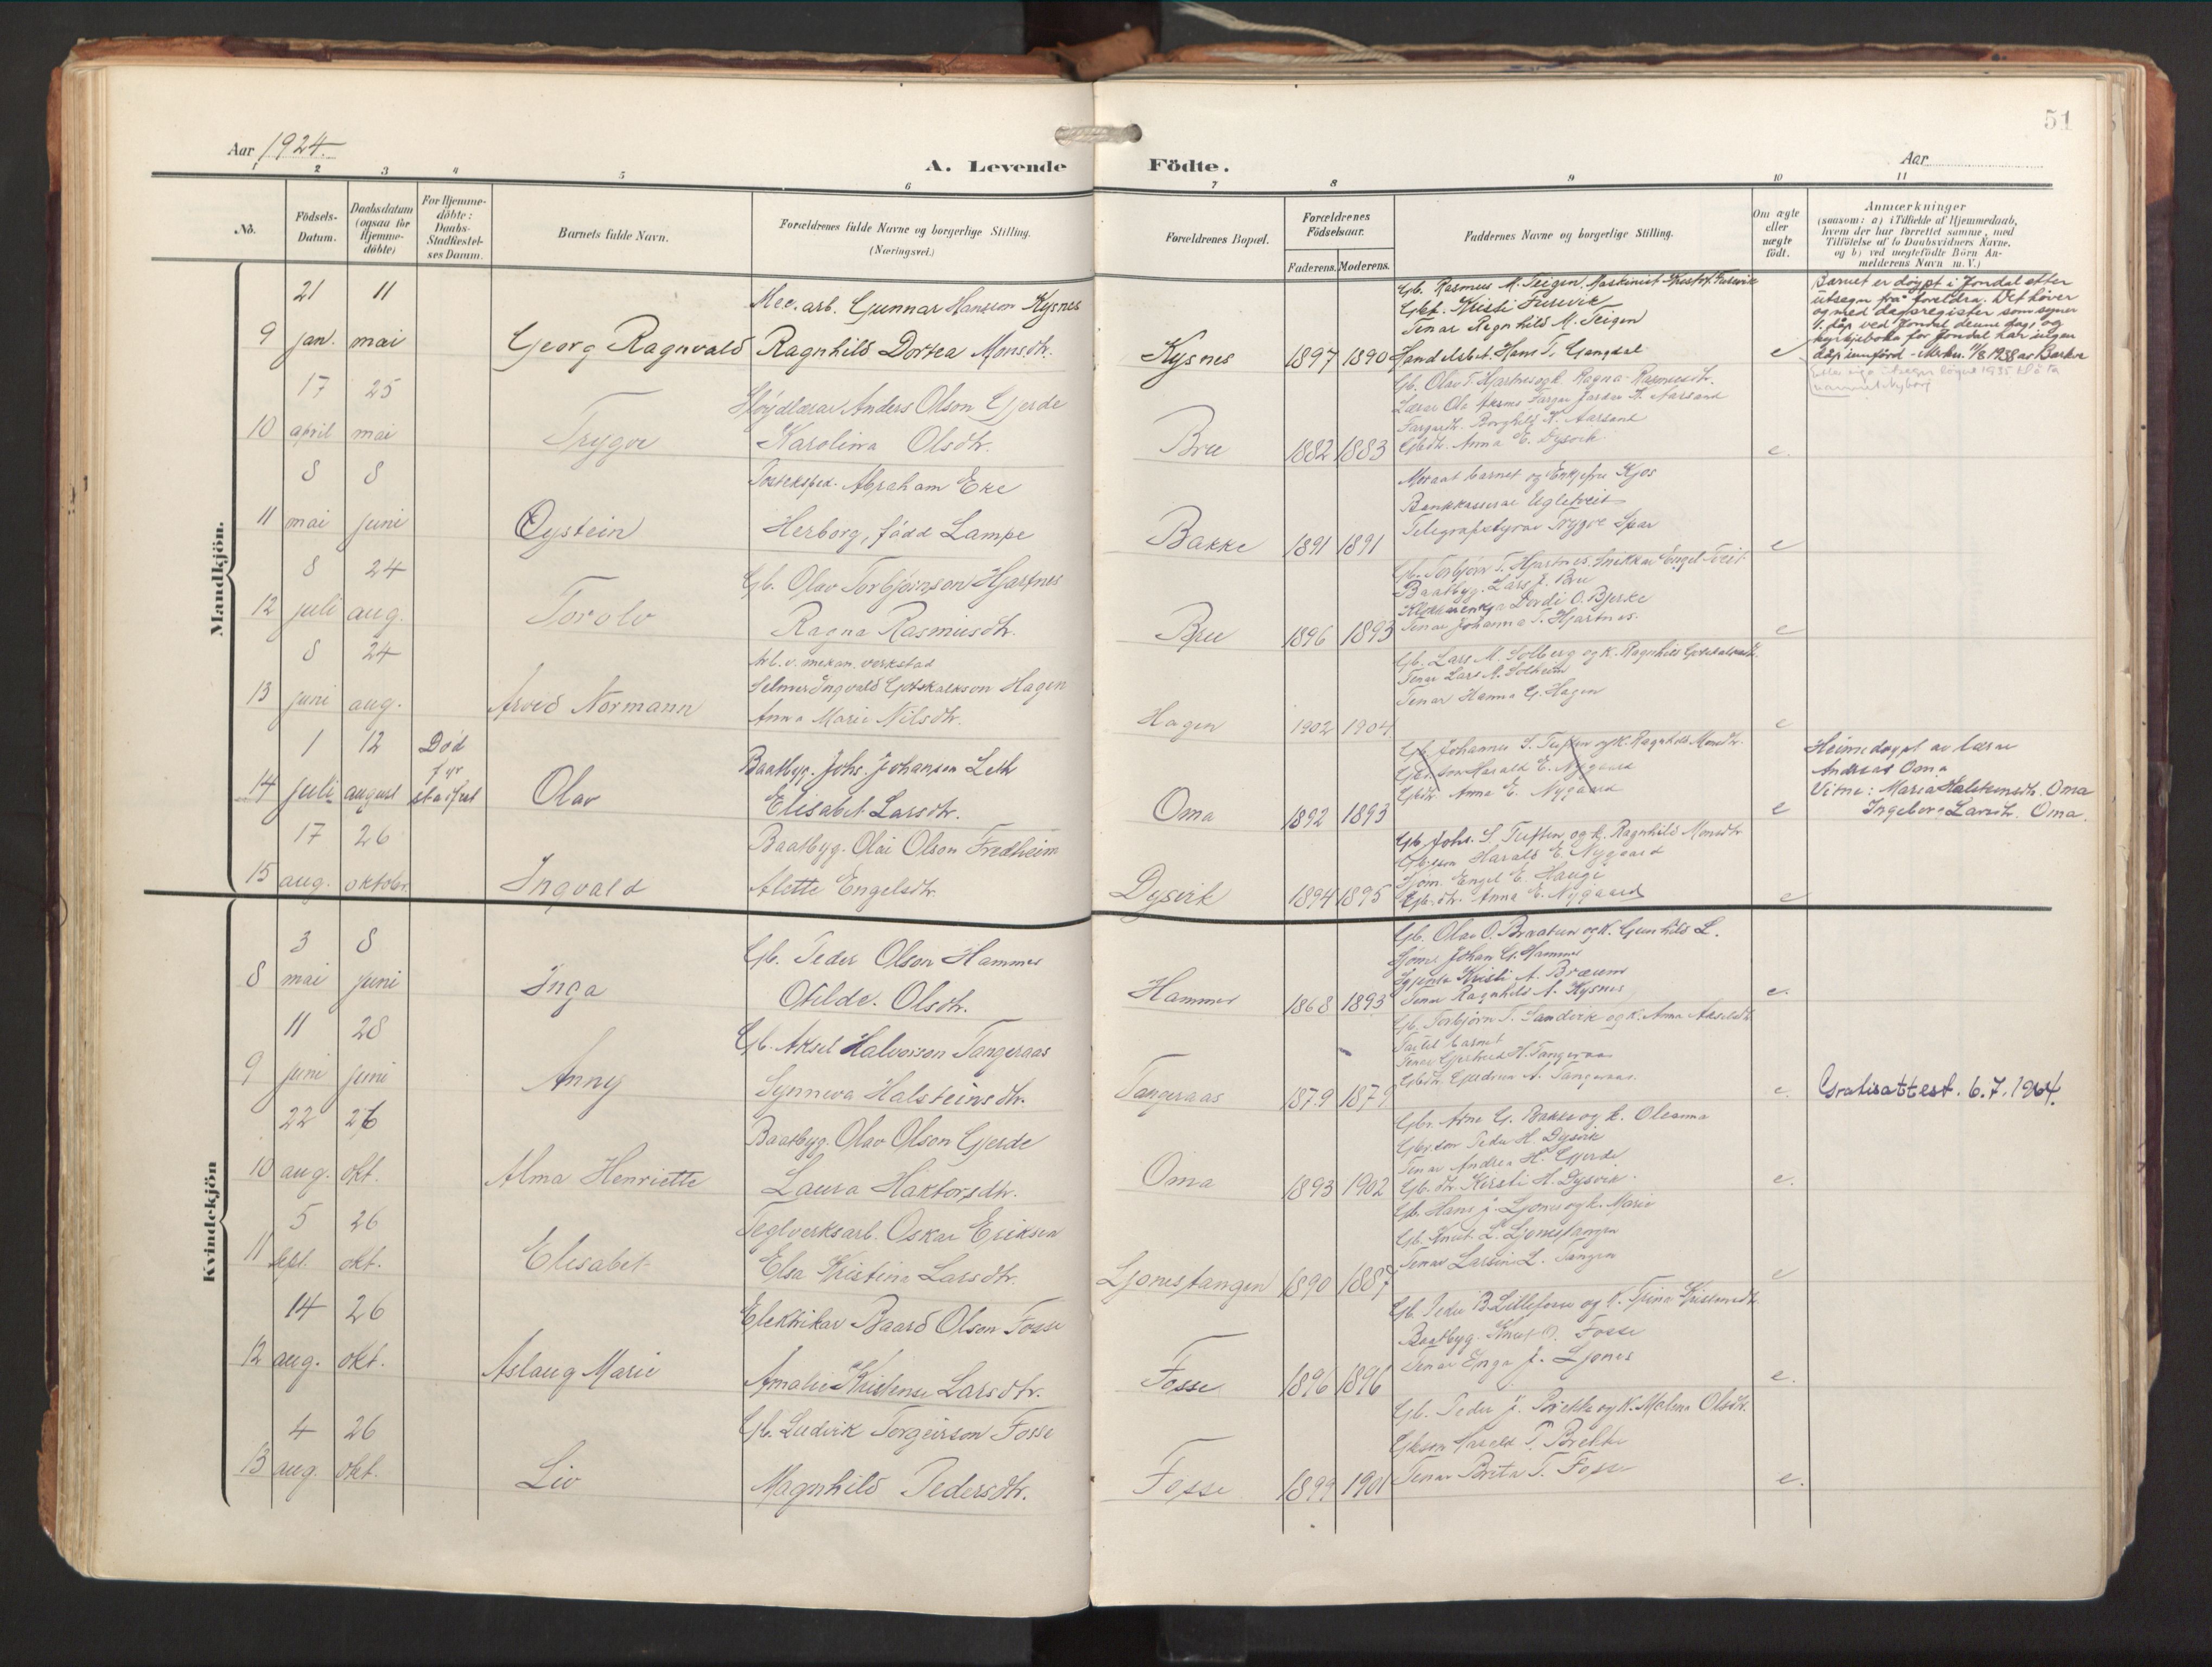 51
Aar 1924.
A. Levende Födte.
Aar
1 2 3 4 5 6 7 8 9 10 11
No.
Födsels-Datum.
Daabsdatum (ogsaa for Hjemme-döbte)
For Hjemme-döbte: Daabs-Stadfæstel-ses Datum.
Barnets fulde Navn.
Forældrenes fulde Navne og borgerlige Stilling.
(Næringsvei.)
Forældrenes Bopæl.
Forældrenes Födselsaar.
Faderens. Moderens.
Faddernes Navne og borgerlige Stilling.
Om ægte eller uægte födt.
Anmærkninger
(saasom: a) i Tilfælde af Hjemmedaab,
hvem der har forrettet samme, med
Tilföielse af to Daabsvidners Navne,
og b) ved uægtefödte Börn An-
melderens Navn m. V.)
Mandkjön.
9 21 jan. 11 mai Georg Ragnvald
Mec. arb. Gunnar Hansson Kysnes
Ragnhild Dortea Monsdtr.
Kysnes 1897 1890
Gb. Rasmus M. Teigen, Maskinist Kristof Furevik
Gbk. Kristi Furevik
Tenar Ragnhild M. Teigen
Handelsbet. Hans T. Gangdal
e
Barnet er døypt i Jondal etter
utsegn frå foreldra. Det høver
og med dagsregister som syner
1. dåp ved Jondal denne dag, og
kyrkjeboka for Jondal har ingen
dåp innförd - Merkn. 11/8 1938 av Barkve
10 17 april 25 mai Trygve
Anders Olson Gjerde
Karolina Olsdtr.
Bru 1882 1883
Gb. Olav T. Hjartnes og k. Ragna Rasmusdtr.
Fargardtr. Borghild K. Aarsand
Gbdtr. Anna E. Dysvik
e.
11 8 mai 8 juni Öystein
Posteksped. Abraham Eke
Herborg, född Lampe
Bakke 1891 1891
Mor aat barnet og Enkjefru Kjos
Bankkasserar Ugletveit
Telegrafstyrar Trygve Spar
e
12 8 juli 24 aug. Torolv
Gb. Olav Torbjørnson Hjartnes
Ragna Rasmusdtr.
Bru 1896 1893
Gb. Torbjørn T. Hjartnes, Snikkar Engel Tveit
Baatbyg. Lars J. Bru
Klokkarenkja Dordi O. Bjerke
Tenar Johanna T. Hjartnes.
e
13 8 juni 24 aug. Arvid Normann
Arb. v. mekan. verkstad
Selmer Ingvald Gotskalkson Hagen
Anna Marie Nilsdtr.
Hagen 1902 1904
Gb. Lars M. Solberg og k. Ragnhild Gotskalksdtr.
Tenar Lars A. Solheim
Tenar Hanna G. Hagen
e
14 1 juli 12 august Död fyr stadfest Olav
Baatbyg. Johs. Johansen Leth
Elisabet Larsdtr.
Oma 1892 1893
Gb. Johannes S. Tuften og k. Ragnhild Monsdtr.
Gbr. son Harald E. Nygaard
Gbdtr. Anna E. Nygaard
e
Heimedøypt av lærar
Andreas Oma
Vitne: Maria Halsteinsdtr. Oma
Ingeborg Larsdtr. Oma.
15 17 aug. 26 oktober. Ingvald
Baatbyg. Olai Olson Fredheim
Alette Engelsdtr.
Dysvik 1894 1895
Gb. Johs. S. Tuften og k. Ragnhild Monsdtr
Gb. son Harald E. Nygaard
Sjøm. Engel E. Hauge
Gb. dtr. Anna E. Nygaard
e
Kvindekjön
8 3 mai 8 juni Inga
Gb. Peder Olson Hammer
Otilde. Olsdtr.
Hammer 1868 1893
Gb. Olav O. Braatun og k. Gunhild L.
Sjøm. Johan G. Hammer
Kristi A.
Tenar Ragnhild A. Kysnes
e.
9 11 juni 28 juni Anny
Gb. Aksel Halvorson Tangeraas
Synneva Halsteinsdtr.
Tangeraas 1879 1879
Gb. Torbjørn T. Sandvik og k. Anna Akseldtr
barnet
Tenar Gjertrud H. Tangeraas
Gbdtr. Gudrun A. Tangeraas.
e.
Gratisattest. 6.7.1964.
10 22 aug. 26 okt. Alma Henriette
Baatbyg. Olav Olson Gjerde
Laura Haktorsdtr.
Oma 1893 1902
Gbr. Arne G. Bakke og k. Oleanna
Gbr. son Peder H. Dysvik
Tenar Andrea H. Gjerde
Gb. dtr. Kirsti H. Dysvik.
e.
11 5 sept. 26 okt. Elisabet
Teglverksarb. Oskar Eriksen
Elsa Kristina Larsdtr.
Ljonestangen 1890 1887
Gb. Hans J. Ljones og k. Marie
Gb. Knut L. Ljonestangen
Tenar Larsina L. Tangen
e
12 14 aug. 26 okt. Aslaug Marie
Elektrikar Baard Olson Fosse
Amalie Kristense Larsdtr.
Fosse 1896 1896
Gb. Peder B. Lillefosse og k. Trina Kristensdtr.
Baatbyg. Knut O. Fosse
Tenar Enga J. Ljones
e.
13 4 aug. 26 okt. Liv
Gb. Ludvik Torgeirson Fosse
Magnhild Pedersdtr.
Fosse 1899 1901
Gb. Peder J. Brekke og k. Malena Olsdtr.
Gbson Harald P. Brekke
Tenar Brita T. Fosse
e.